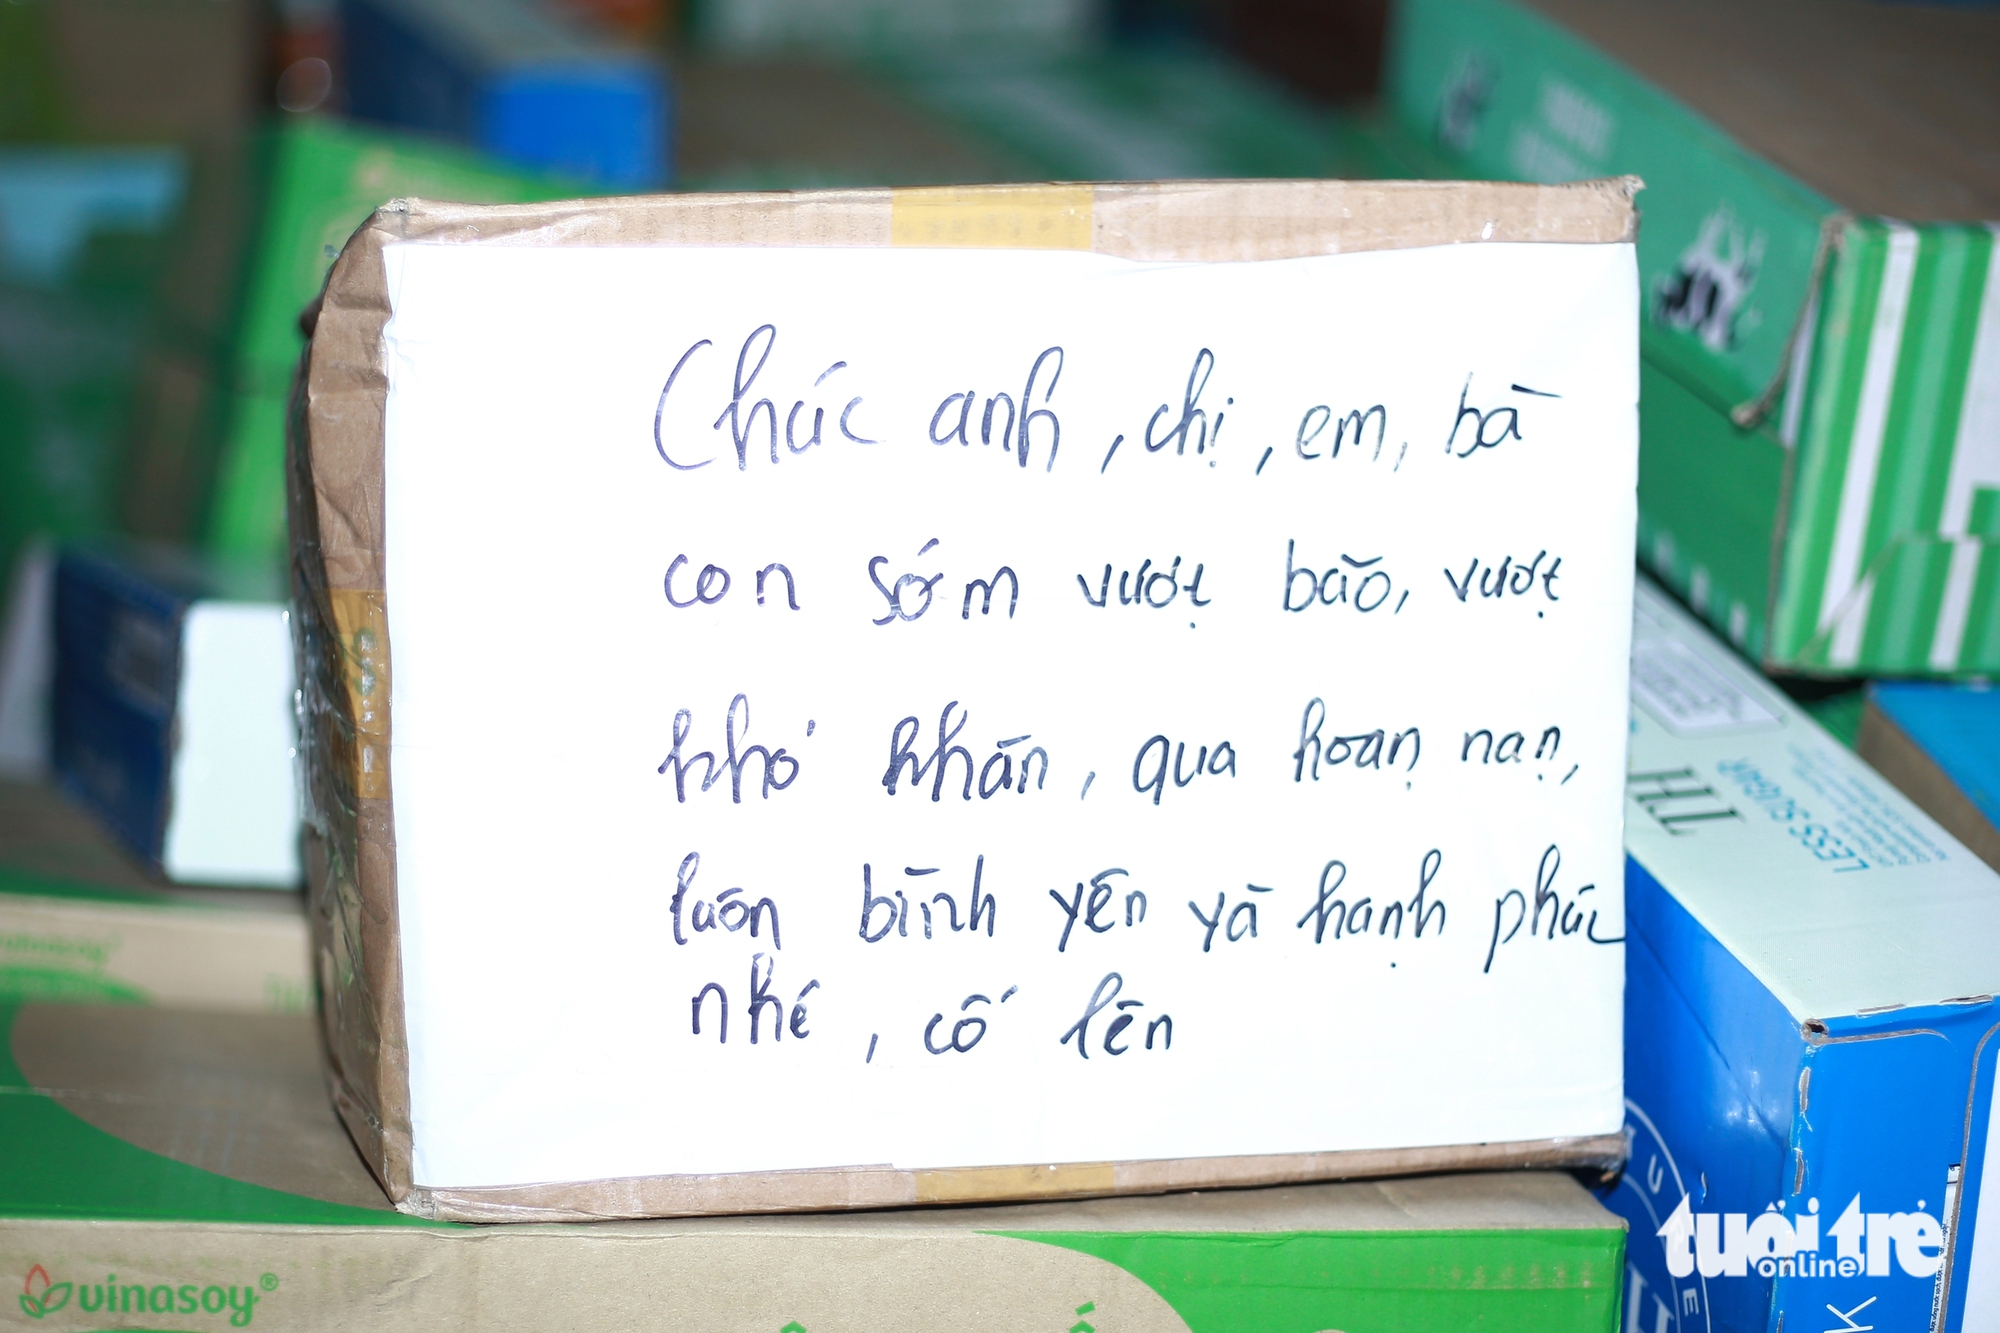 Chúc anh, chị, em, bà
con sớm vượt bão, vượt
khó khăn, qua hoạn nạn,
luôn bình yên và hạnh phúc
nhé, cố lên
LESS SUGAR
TH
vinasoy
vinasoy®
tuổi trẻ
online